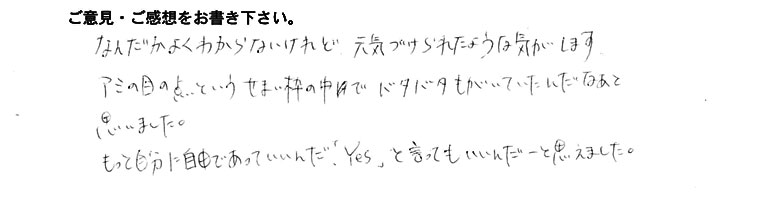 ご意見・ご感想をお書き下さい。
なんだかよくわからないけれど、元気づけられたような気がします
アミの目の点というせまい枠の中でバタバタもがいていたんだなあと
思いました。
もっと自分に自由であっていいんだ、「Yes」と言ってもいいんだーと思えました。